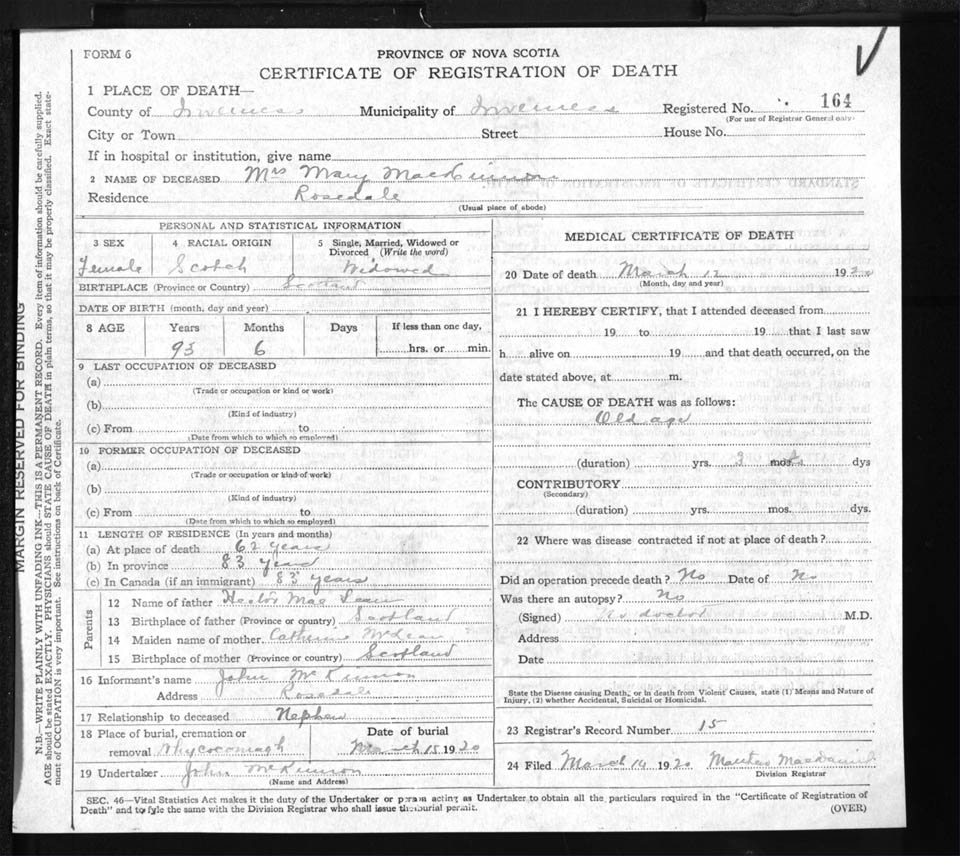 FORM 6
PROVINCE OF NOVA SCOTIA
CERTIFICATE OF REGISTRATION OF DEATH
1 PLACE OF DEATH—
County of Inverness Municipality of Inverness Registered No. 164
(For use of Registrar General only)
City or Town Street House No.
If in hospital or institution, give name
2 NAME OF DECEASED Mrs Mary MacKinnon
Residence Rosedale
(Usual place of abode)
PERSONAL AND STATISTICAL INFORMATION
3 SEX 4 RACIAL ORIGIN 5 Single, Married, Widowed or Divorced (Write the word)
Female Scotch Widowed
BIRTHPLACE (Province or Country) Scotland
DATE OF BIRTH (month, day and year)
8 AGE Years Months Days If less than one day,
93 6 hrs. or min.
9 LAST OCCUPATION OF DECEASED
(a)
(Trade or occupation or kind or work)
(b)
(Kind of industry)
(c) From to
(Date from which to which so employed)
10 FORMER OCCUPATION OF DECEASED
(a)
(Trade or occupation or kind of work)
(b)
(Kind of industry)
(c) From to
(Date from which to which so employed)
11 LENGTH OF RESIDENCE (In years and months)
(a) At place of death 62 years
(b) In province 83 years
(c) In Canada (if an immigrant) 83 years
Parents
12 Name of father Hector Mac Lean
13 Birthplace of father (Province or country) Scotland
14 Maiden name of mother Catherine McLean
15 Birthplace of mother (Province or country) Scotland
16 Informant's name John McKinnon
Address Rosedale
17 Relationship to deceased Nephew
18 Place of burial, cremation or removal Whycocomagh
Date of burial
March 15 1920
19 Undertaker John McKinnon
(Name and Address)
MEDICAL CERTIFICATE OF DEATH
20 Date of death March 12 1920
(Month, day and year)
21 I HEREBY CERTIFY, that I attended deceased from
19 to 19 that I last saw
h alive on 19 and that death occurred, on the
date stated above, at m.
The CAUSE OF DEATH was as follows:
Old age
(duration) yrs. 3 mos. dys
CONTRIBUTORY
(Secondary)
(duration) yrs. mos. dys.
22 Where was disease contracted if not at place of death?
Did an operation precede death? No Date of No
Was there an autopsy? No
(Signed) No doctor M.D.
Address
Date
State the Disease causing Death, or in death from Violent Causes, state (1) Means and Nature of
Injury, (2) whether Accidental, Suicidal or Homicidal.
23 Registrar's Record Number 15
24 Filed March 14 1920
Division Registrar
SEC. 46—Vital Statistics Act makes it the duty of the Undertaker or person acting as Undertaker to obtain all the particulars required in the "Certificate of Registration of
Death" and to fyle the same with the Division Registrar who shall issue the burial permit.
(OVER)
MARGIN RESERVED FOR BINDING
N.B.—WRITE PLAINLY WITH UNFADING INK—THIS IS A PERMANENT RECORD. Every item of information should be carefully supplied.
AGE should be stated EXACTLY. PHYSICIANS should STATE CAUSE OF DEATH in plain terms, so that it may be properly classified. Exact state-
ment of OCCUPATION is very important. See instructions on back of Certificate.